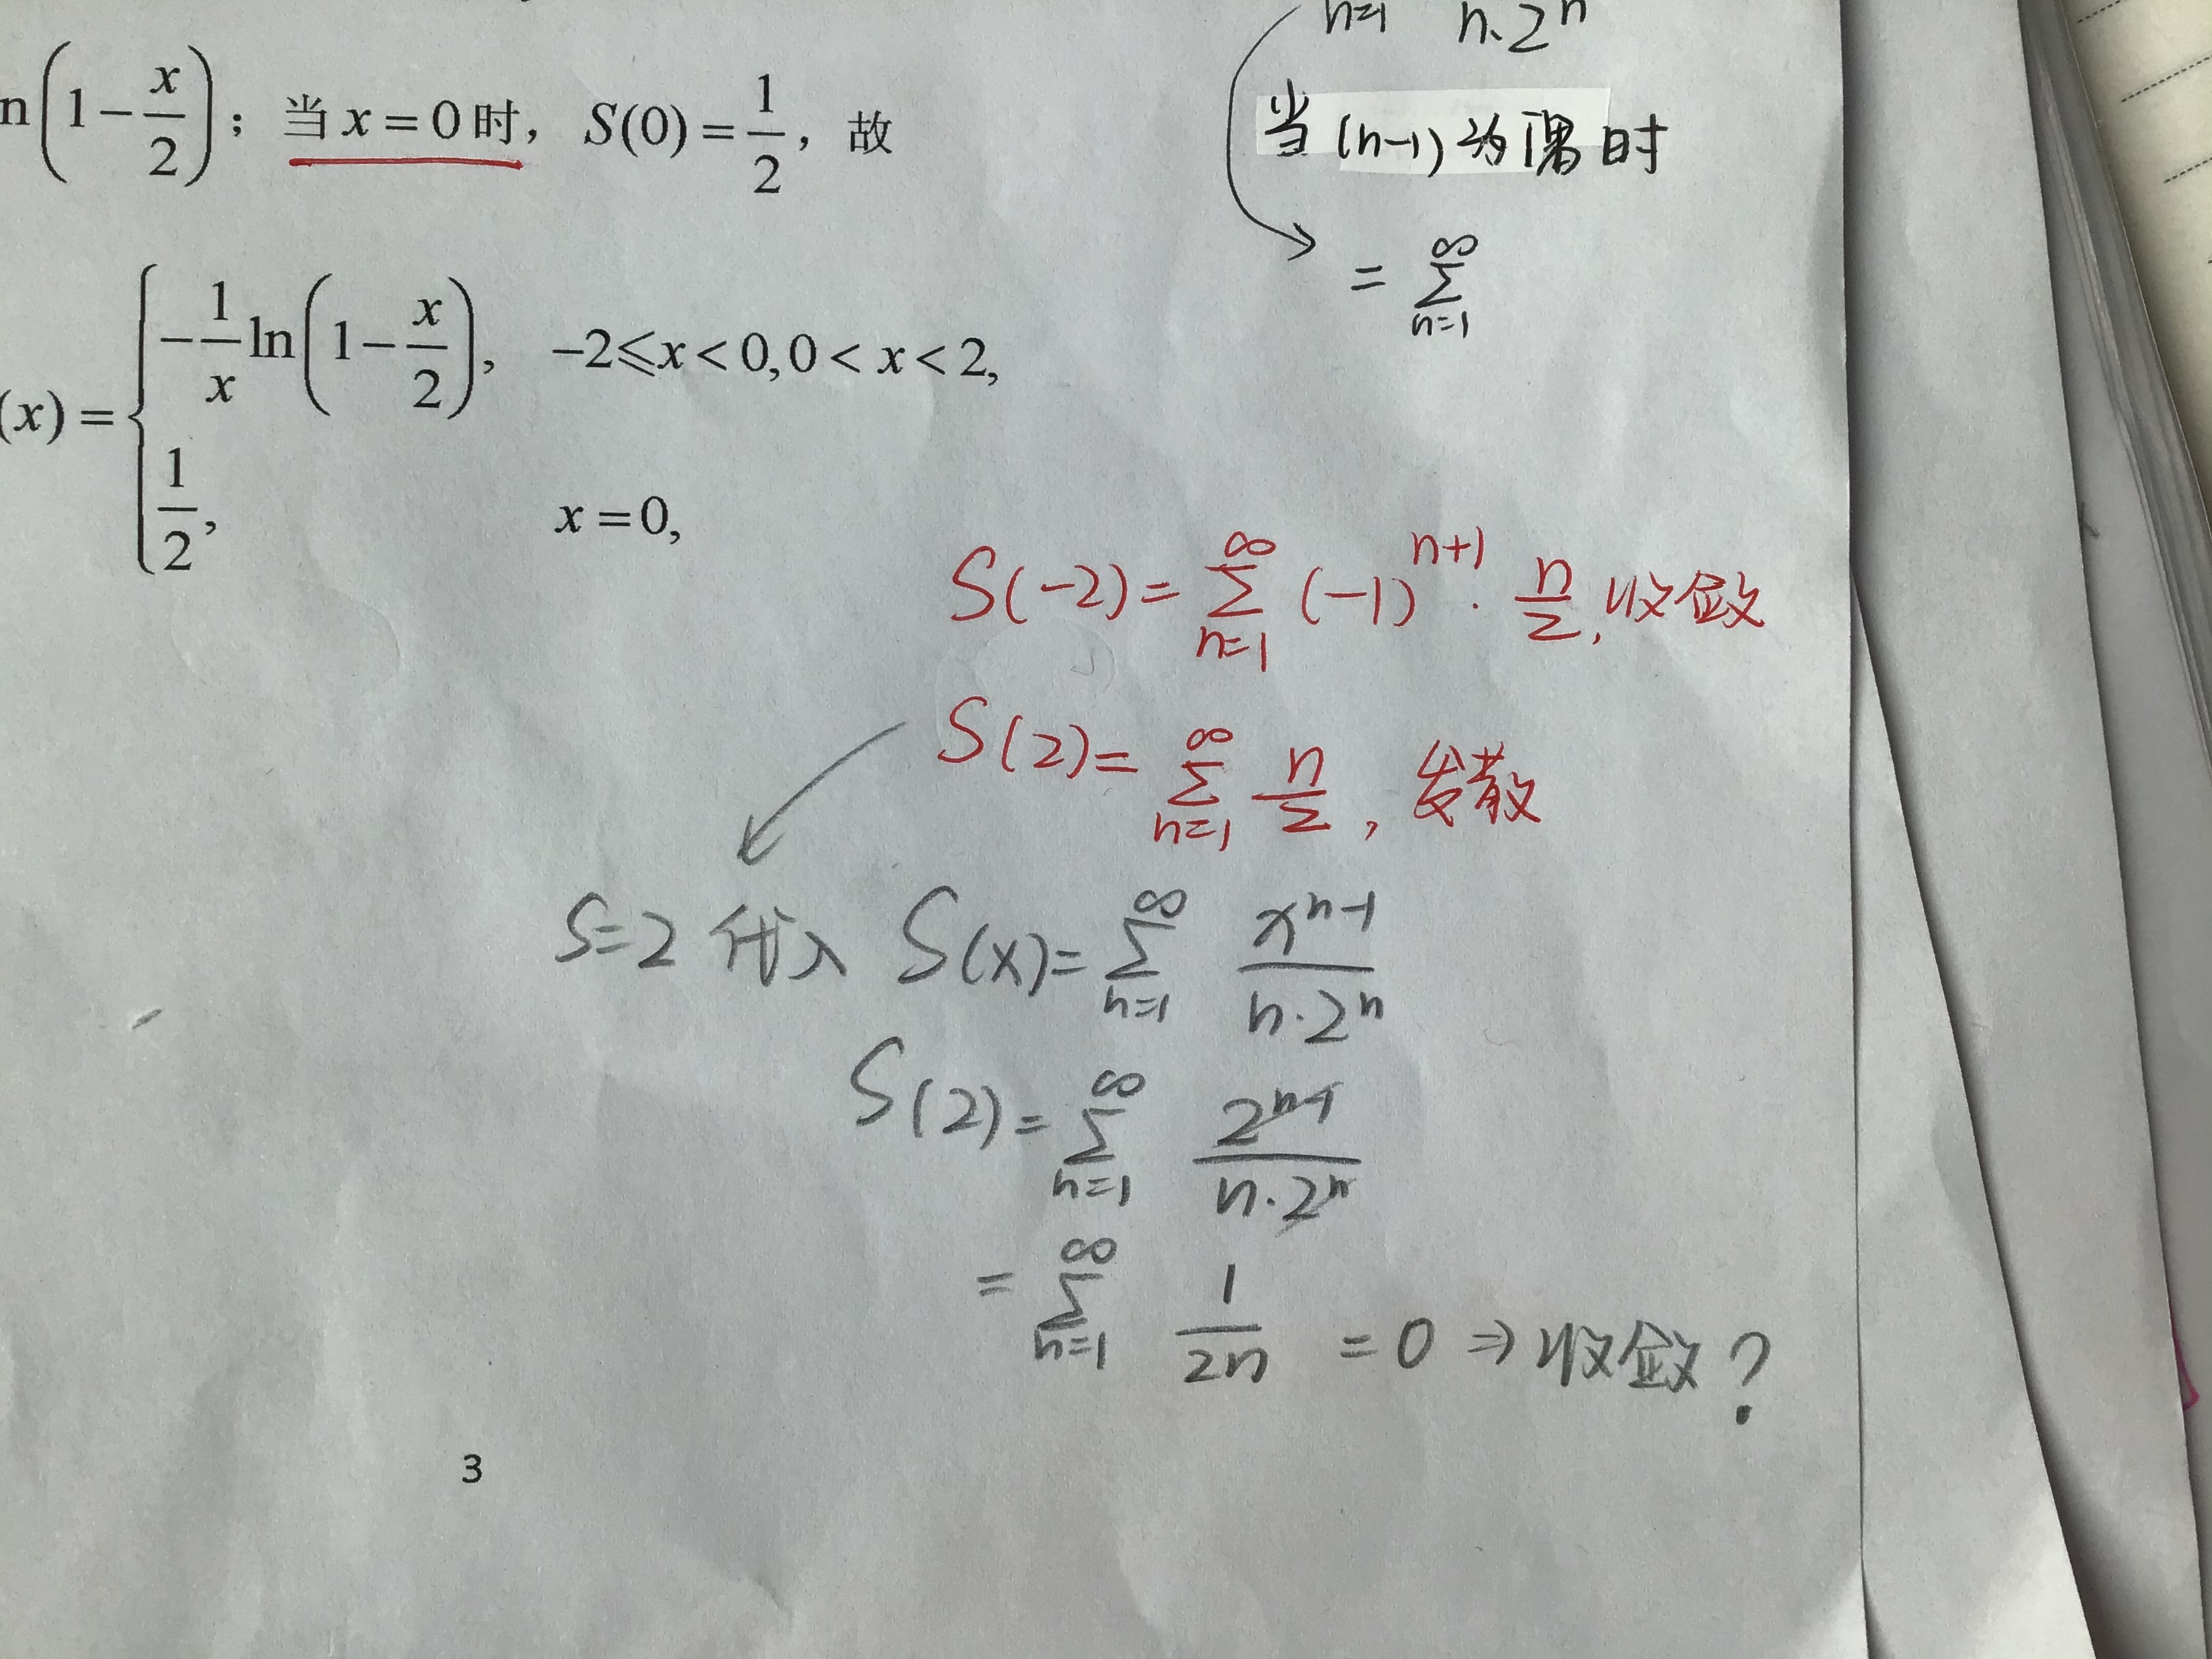 n(1-x/2); 当x=0时, S(0)=1/2, 故
(x)={ -1/x ln(1-x/2), -2≤x<0,0<x<2,
1/2, x=0,
n=1 n·2^n
当(n-1)为偶时
= ∑_{n=1}^{∞}
S(-2)= ∑_{n=1}^{∞} (-1)^{n+1} · n/2, 收敛
S(2)= ∑_{n=1}^{∞} n/2, 发散
S=2 代入 S(x)= ∑_{n=1}^{∞} x^{n-1}/(n·2^n)
S(2)= ∑_{n=1}^{∞} 2^{n-1}/(n·2^n)
= ∑_{n=1}^{∞} 1/2n = 0 => 收敛?
3